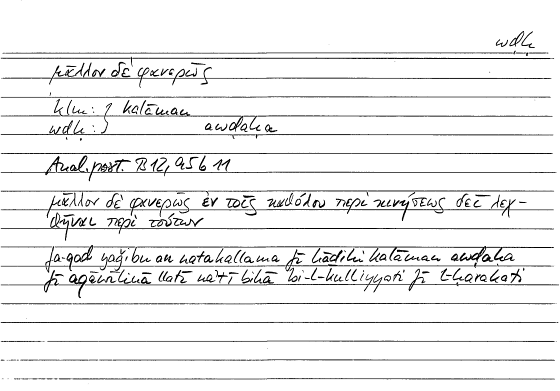 wḍḥ
μᾶλλον δὲ φανερῶς
klm : } kalāman
wḍḥ : } awḍaḥa
Anal. post. B 12, 95 b 11
μᾶλλον δὲ φανερῶς ἐν τοῖς καθόλου περὶ κινήσεως δεῖ λεχ-
θῆναι περὶ τούτων
fa-qad yaǧibu an natakallama fī hāḏihi kalāman awḍaḥa
fī aqāwīlinā llatī na’tī bihā bi-l-kulliyyati fī l-ḥarakati